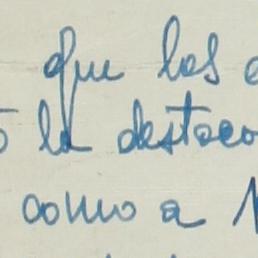 que los
la destaco
como a